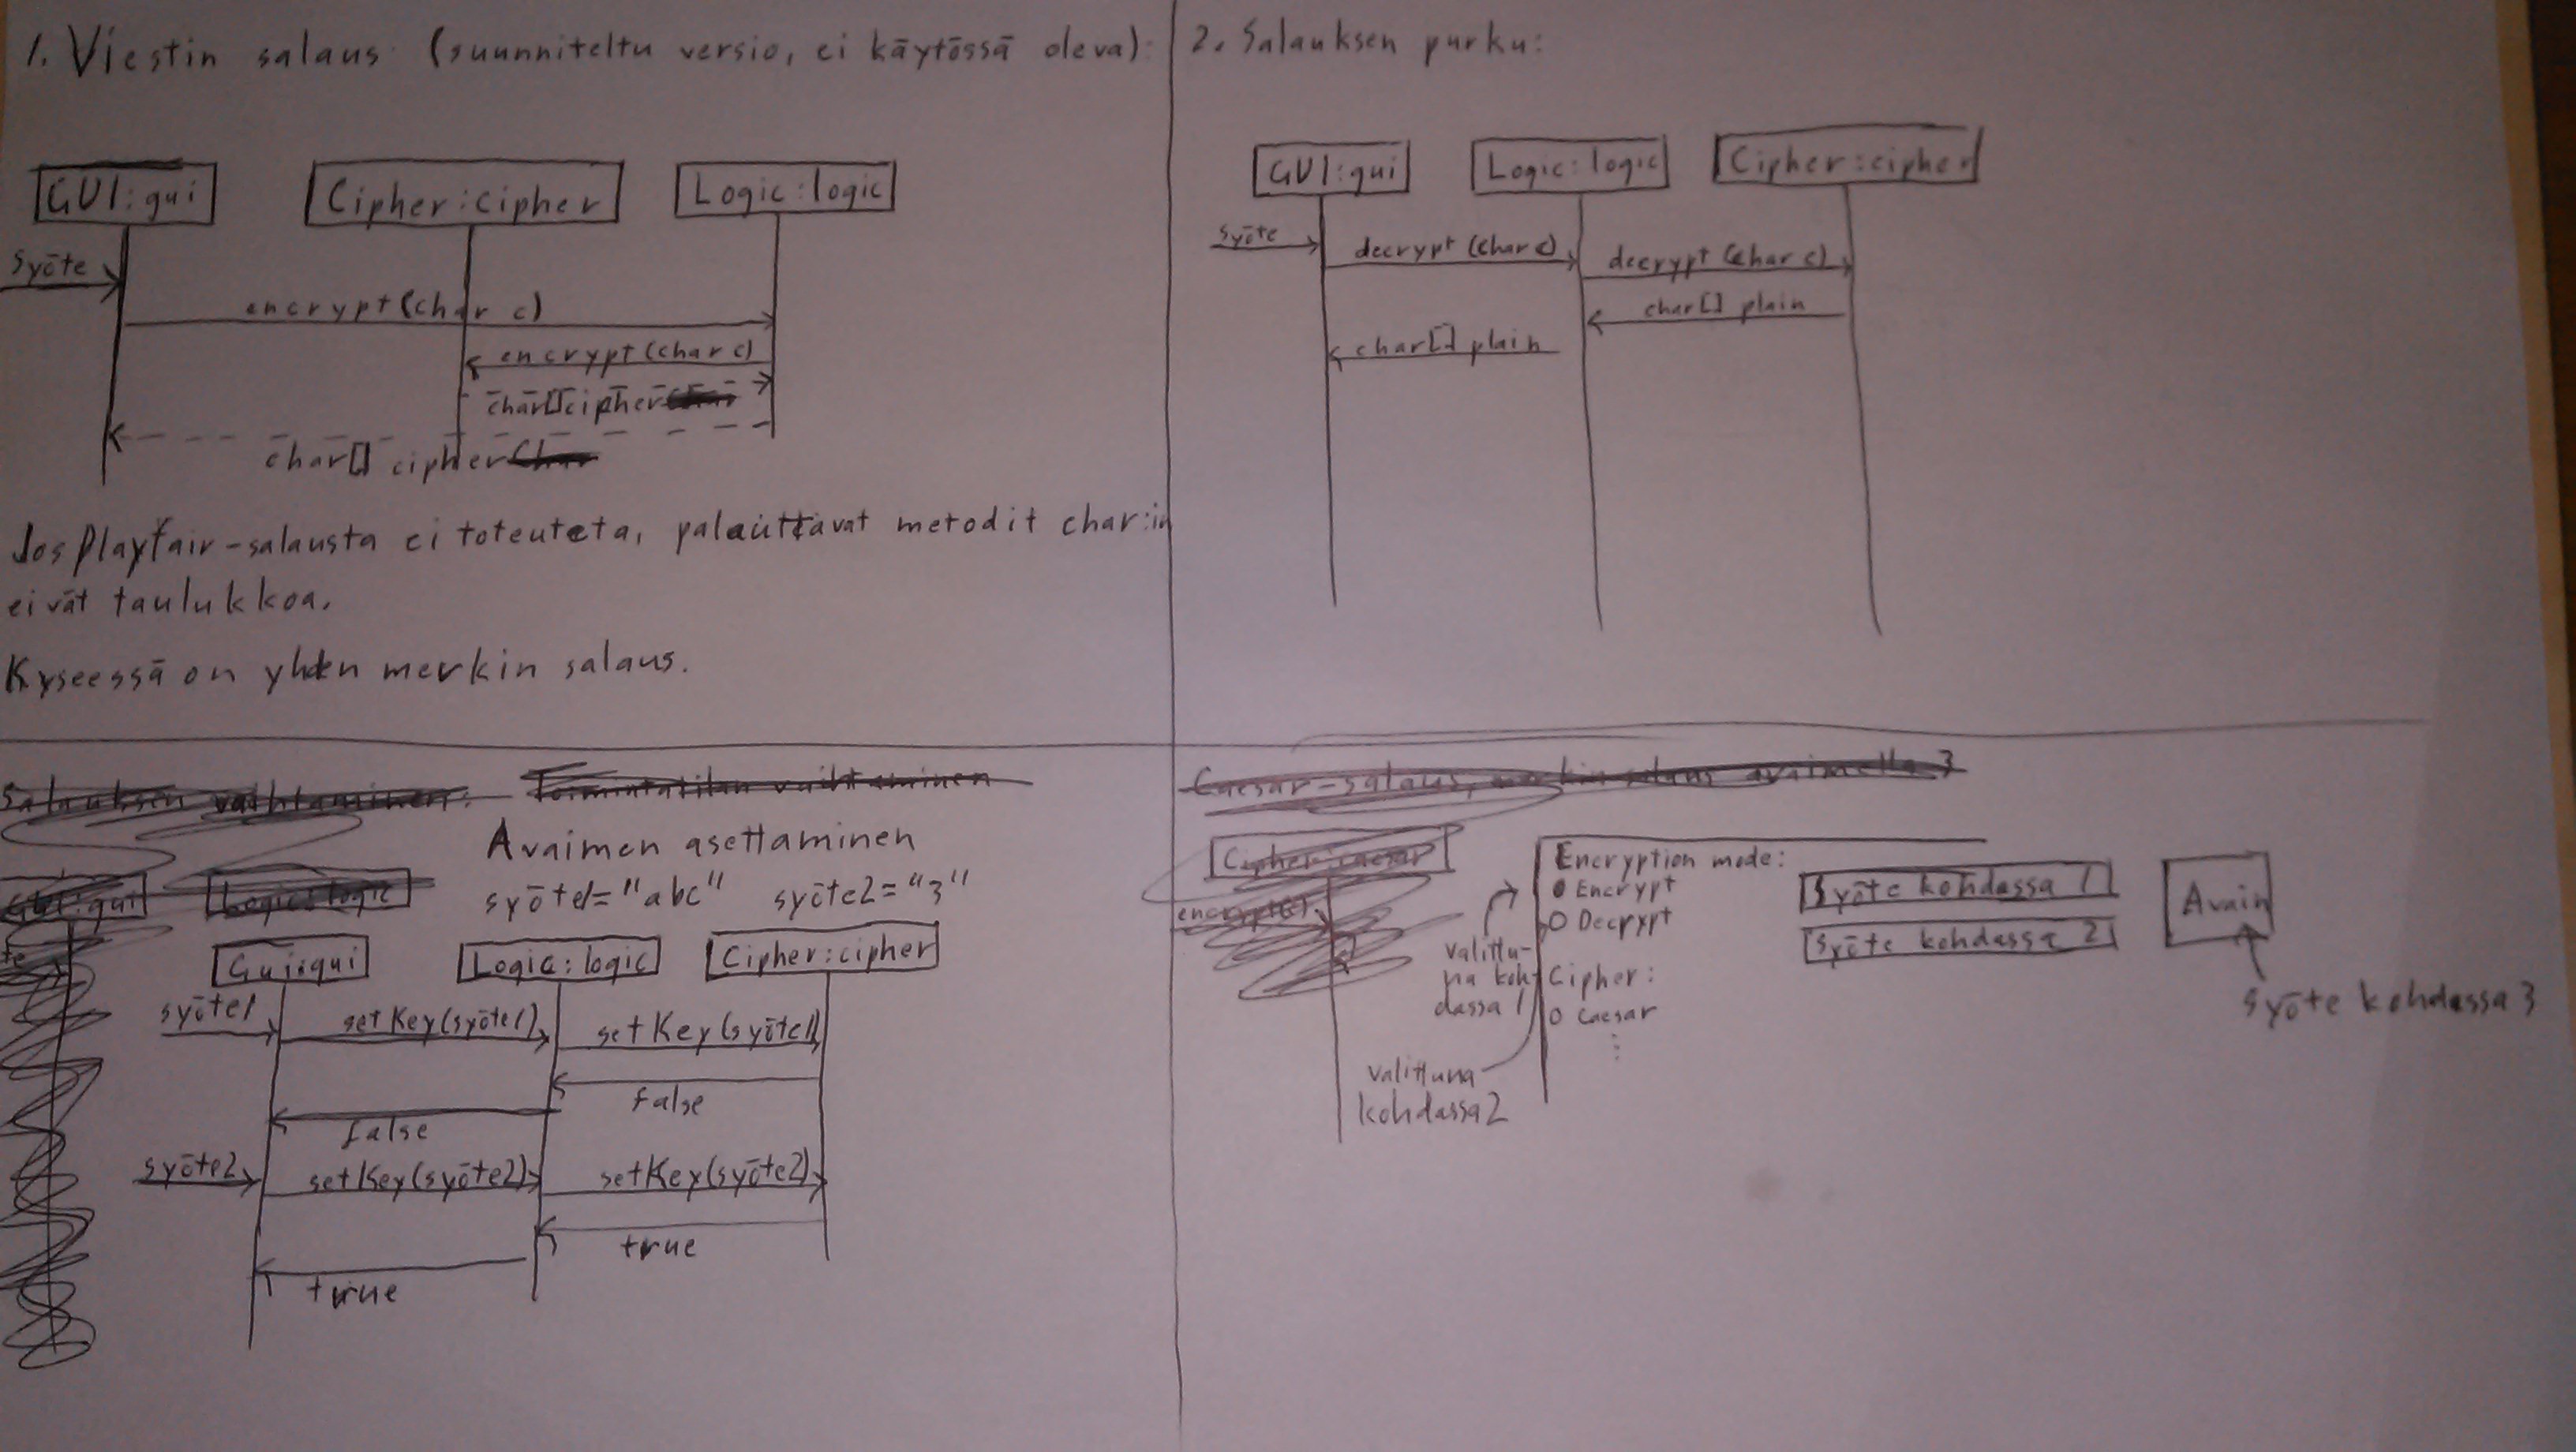 1. Viestin salaus (suunniteltu versio, ei käytössä oleva):
GUI:gui
Cipher:cipher
Logic:logic
syöte
encrypt(char c)
encrypt(char c)
char[] cipher
char[] cipher
Jos Playfair-salausta ei toteuteta, palauttavat metodit char:in
eivät taulukkoa.
Kyseessä on yhden merkin salaus.
2. Salauksen purku:
GUI:gui
Logic:logic
Cipher:cipher
syöte
decrypt(char c)
decrypt(char c)
char[] plain
char[] plain
Salauksen vaihtaminen: Toimintatilan vaihtaminen
GUI:gui
Logic:logic
Avaimen asettaminen
syöte1="abc" syöte2="3"
Gui:gui
Logic:logic
Cipher:cipher
syöte1
setKey(syöte1)
setKey(syöte1)
false
false
syöte2
setKey(syöte2)
setKey(syöte2)
true
true
Caesar-salaus, merkin salaus avaimella 3
Cipher:caesar
Encryption mode:
Encrypt
Decrypt
Cipher:
Caesar
valittu-
na koh-
dassa 1
valittuna
kohdassa 2
Syöte kohdassa 1
Syöte kohdassa 2
Avain
Syöte kohdassa 3